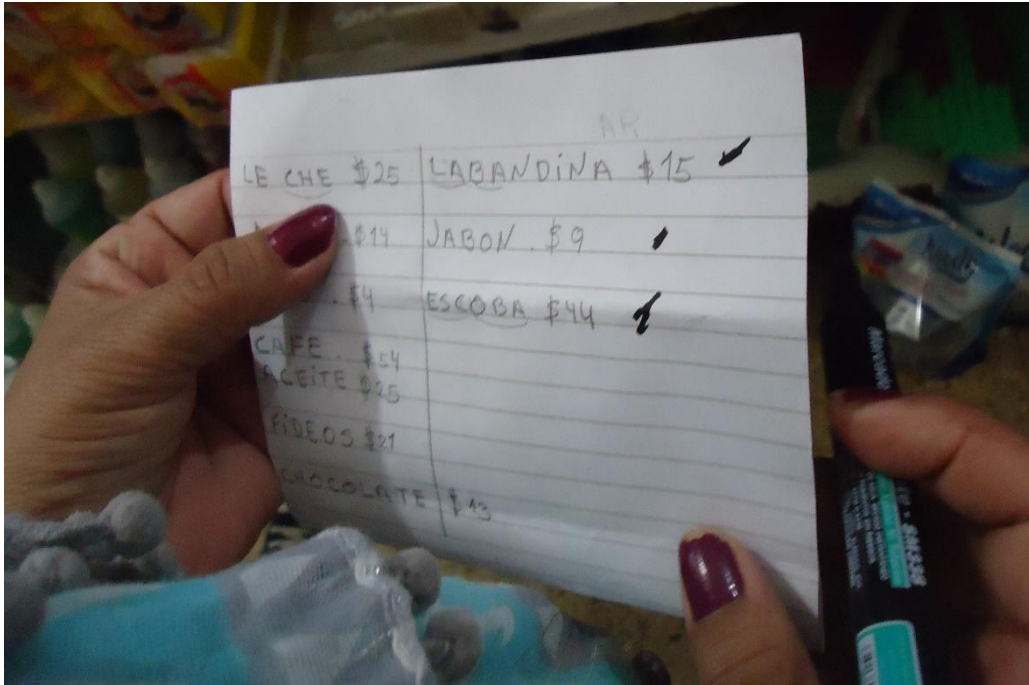 AR
LE CHE $25
$14
. $4
CAFE . $54
ACEITE $25
FIDEOS $21
CHOCOLATE $13
LABANDINA $15
JABON . $9
ESCOBA $44